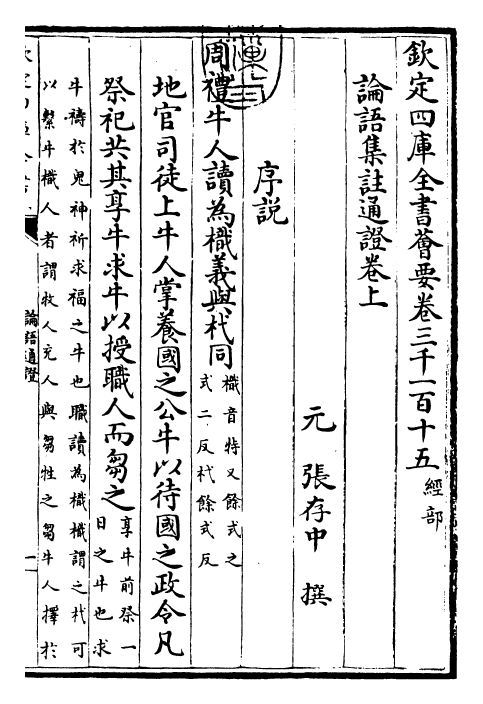 欽定四庫全書薈要卷三千一百十五 經部
論語集註通證卷上
元 張存中 撰
序說
周禮牛人讀為樴義與杙同 樴音特又餘式之
式二反杙餘式反
地官司徒上牛人掌養國之公牛以待國之政令凡
祭祀共其享牛求牛以授職人而芻之 享牛前祭一
日之牛也求
牛禱於鬼神祈求福之牛也職讀為樴樴謂之杙可
以繫牛樴人者謂牧人充人與芻牲之芻牛人擇於
論語通證
一